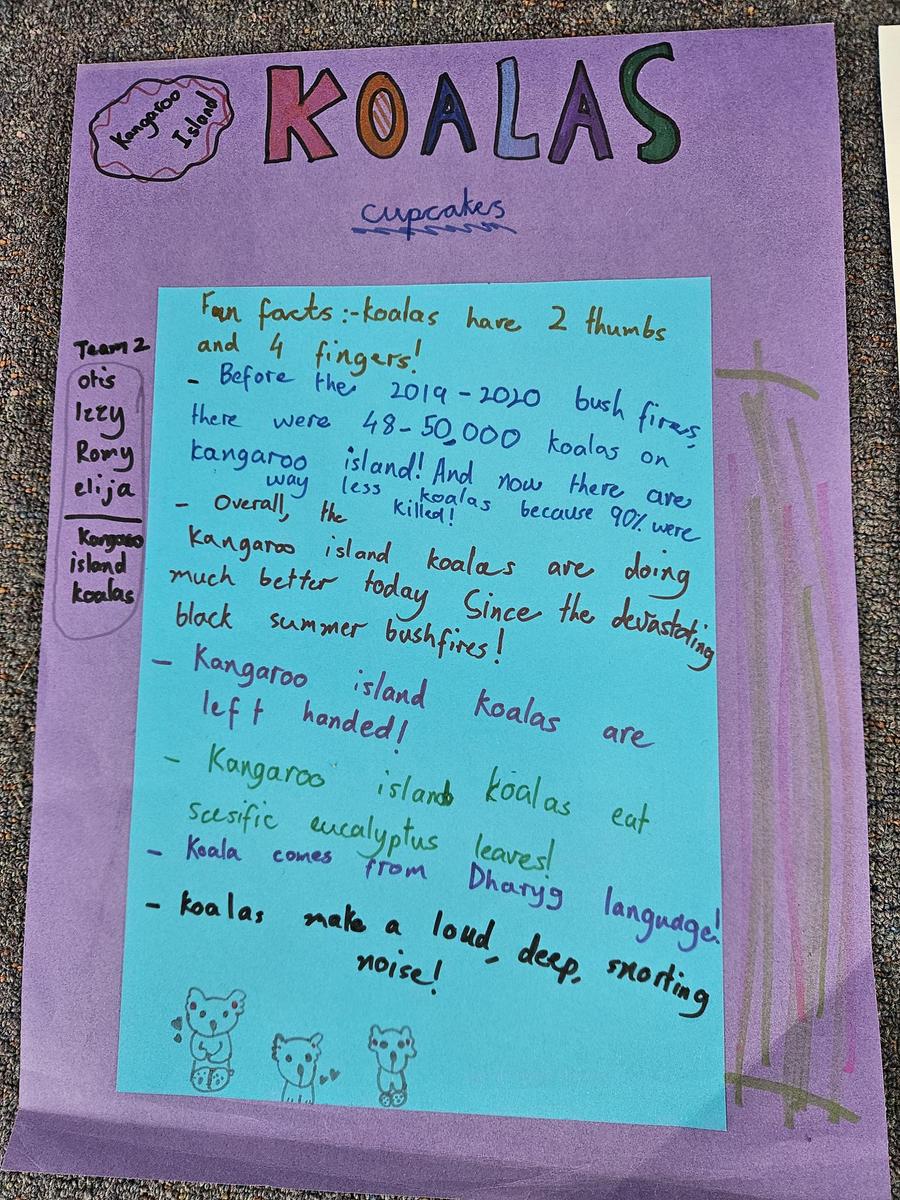 Kangaroo
Island
KOALAS
cupcakes
Team 2
otis
Izzy
Romy
elija
Kangaroo
island
koalas
Fun facts:-koalas have 2 thumbs
and 4 fingers!
- Before the 2019-2020 bush fires,
there were 48-50,000 koalas on
kangaroo island! And now there are
way less koalas because 90% were
killed!
- Overall, the
Kangaroo island koalas are doing
much better today Since the devastating
black summer bushfires!
- Kangaroo island koalas are
left handed!
- Kangaroo island koalas eat
scesific eucalyptus leaves!
- Koala comes from Dharyg language!
- koalas make a loud, deep, snorting
noise!